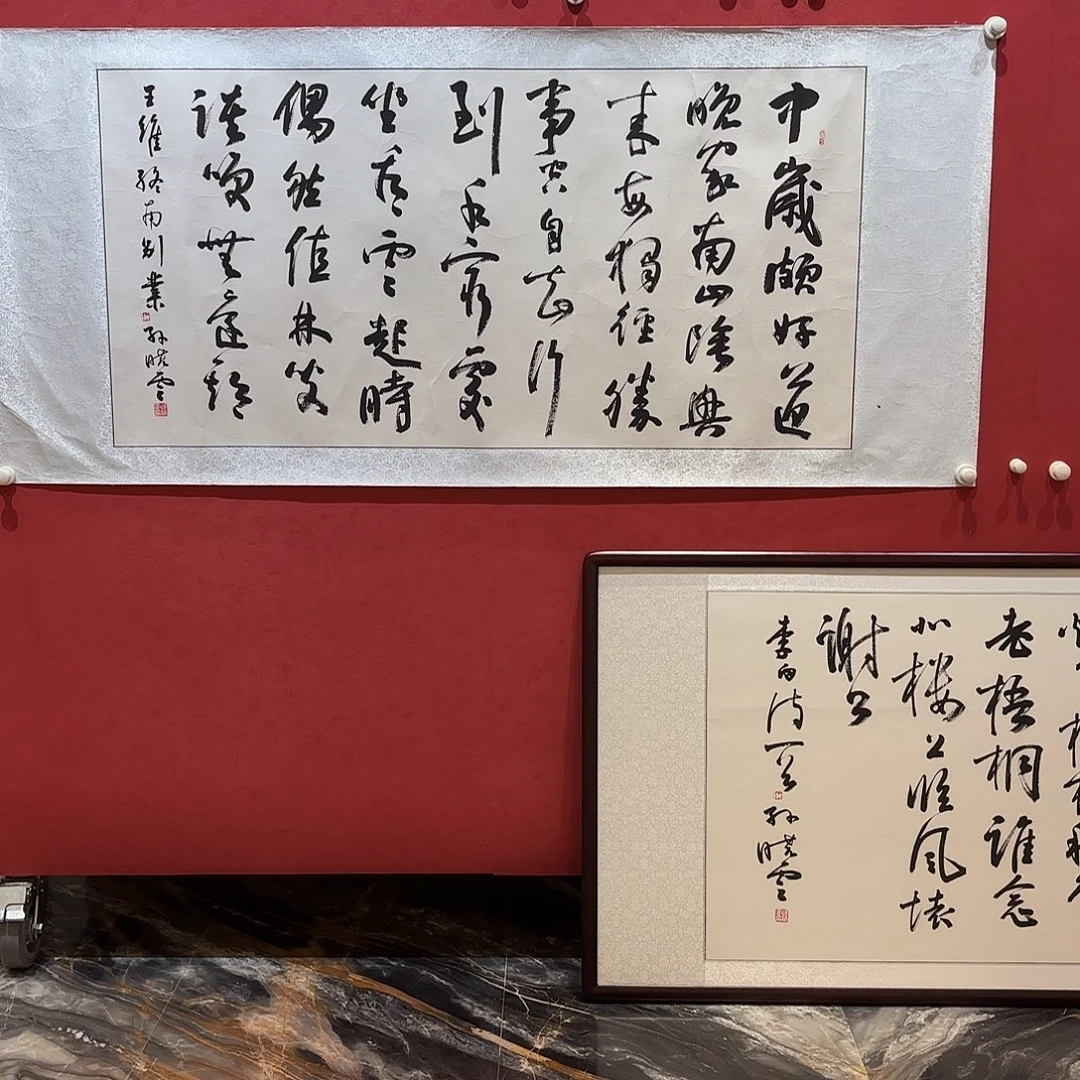 中歲頗好道
晚家南山陲興
來每獨往勝
事空自知行
到水窮處
坐看雲起時
偶然值林叟
談笑無還期
王維終南別業 孫曉雲
老梧桐誰念
北樓上臨風懷
謝公
李白詩一首 孫曉雲